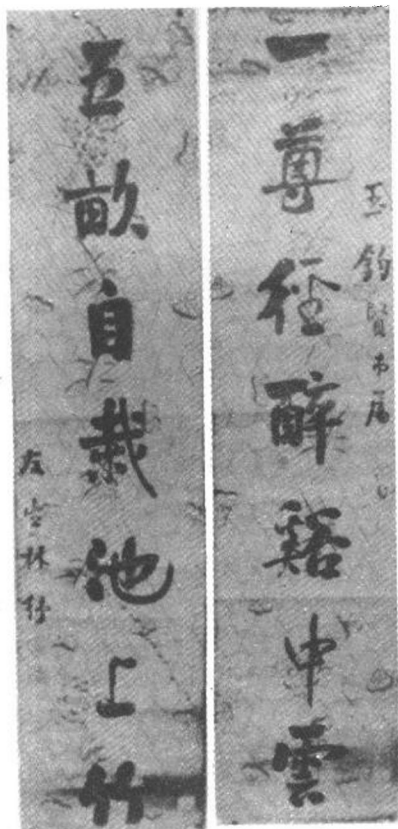 一尊徑醉谿中雲
玉鈞賢弟屬
五畝自栽池上竹
林紓